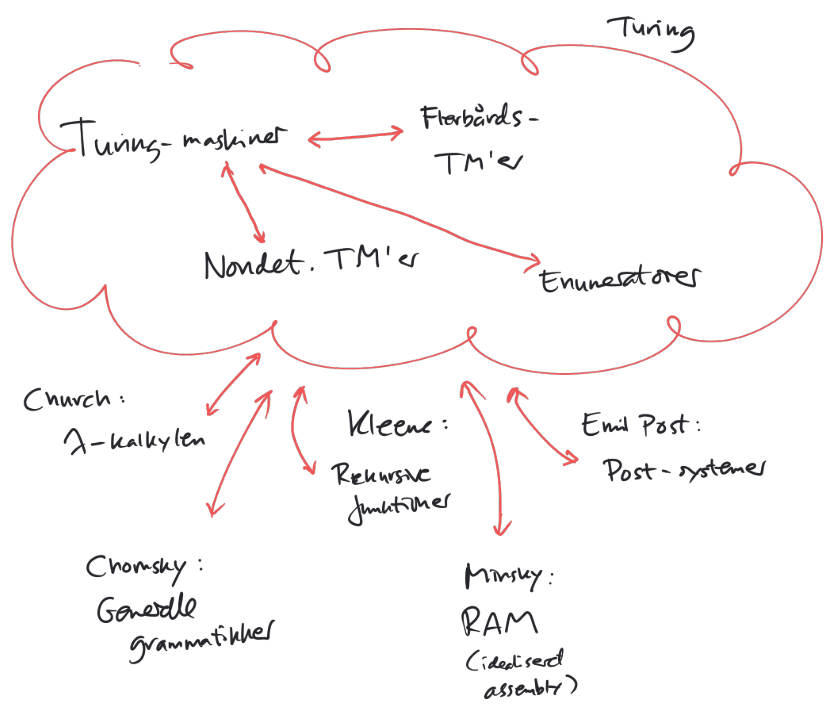 Turing
Turing-maskiner
Flerbånds-
TM'er
Nondet. TM'er
Enumeratorer
Church:
λ-kalkylen
Kleene:
Rekursive
funktioner
Emil Post:
Post-systemer
Chomsky:
Generelle
grammatikker
Minsky:
RAM
(idealiseret
assembly)